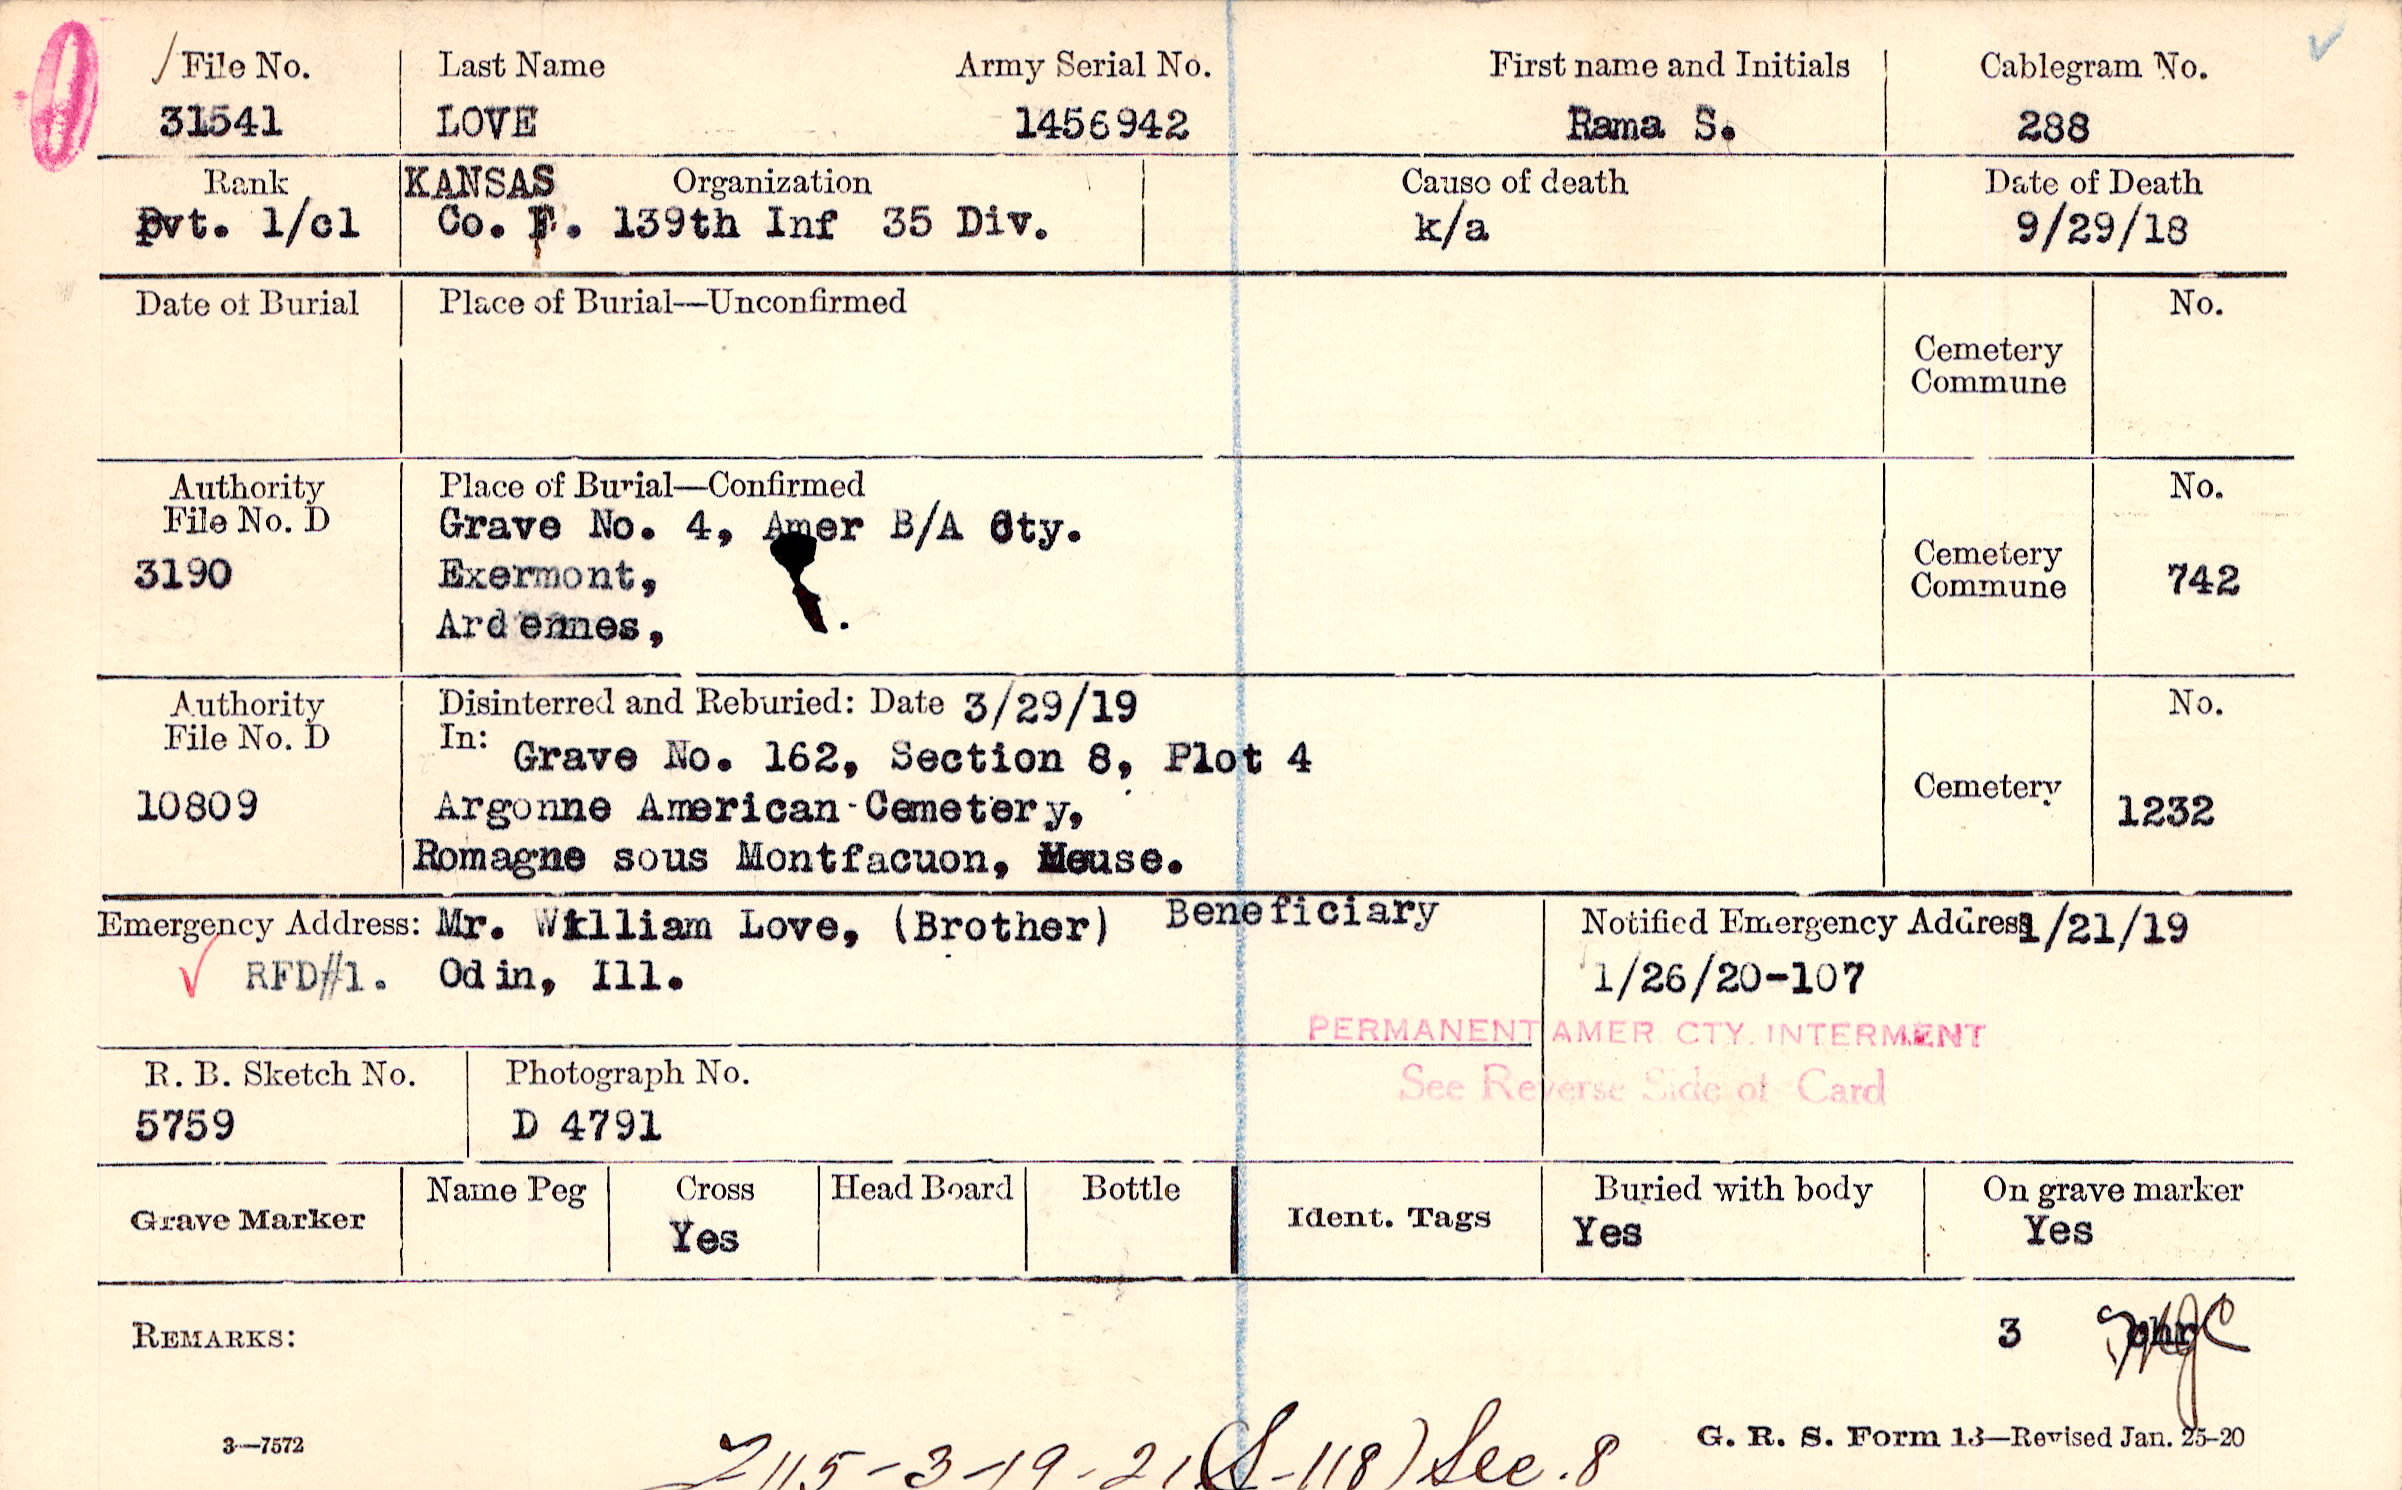 File No. Last Name Army Serial No. First name and Initials Cablegram No.
31541 LOVE 1456942 Rama S. 288
Rank KANSAS Organization Cause of death Date of Death
Pvt. 1/cl Co. F. 139th Inf 35 Div. k/a 9/29/18
Date of Burial Place of Burial—Unconfirmed No.
Cemetery
Commune
Authority Place of Burial—Confirmed No.
File No. D Grave No. 4, Amer B/A Cty.
3190 Exermont, Cemetery
Commune 742
Ardennes,
Authority Disinterred and Reburied: Date 3/29/19 No.
File No. D In: Grave No. 162, Section 8, Plot 4
Cemetery
10809 Argonne American Cemetery, 1232
Romagne sous Montfacuon, Meuse.
Emergency Address: Mr. William Love, (Brother) Beneficiary Notified Emergency Address 1/21/19
RFD#1. Odin, Ill. 1/26/20-107
PERMANENT AMER CTY. INTERMENT
See Reverse Side of Card
R. B. Sketch No. Photograph No.
5759 D 4791
Grave Marker Name Peg Cross Head Board Bottle Ident. Tags Buried with body On grave marker
Yes Yes Yes
REMARKS: 3
3—7572 G. R. S. Form 13—Revised Jan. 25-20
2115-3-19-21 (S-118) Sec. 8